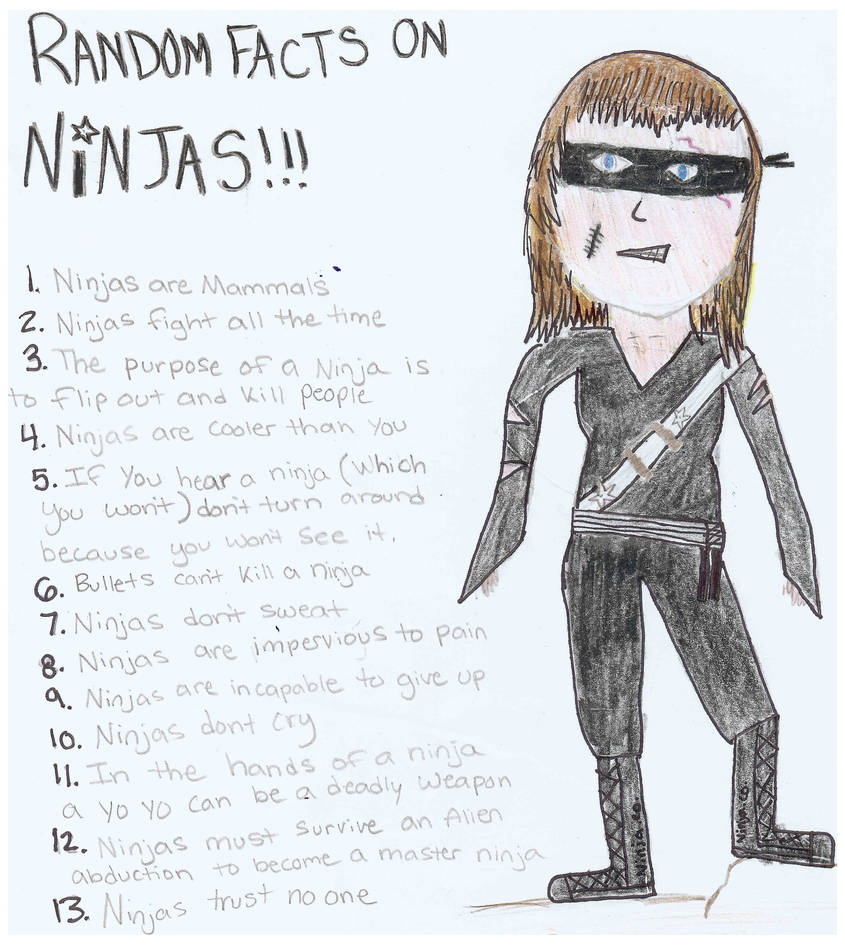 RANDOM FACTS ON
NiNJAS!!!
1. Ninjas are Mammals
2. Ninjas fight all the time
3. The purpose of a Ninja is
to flip out and kill people
4. Ninjas are cooler than you
5. If you hear a ninja (which
you won't) don't turn around
because you won't see it.
6. Bullets can't kill a ninja
7. Ninjas don't sweat
8. Ninjas are impervious to pain
9. Ninjas are incapable to give up
10. Ninjas dont cry
11. In the hands of a ninja
a yo yo can be a deadly weapon
12. Ninjas must survive an Alien
abduction to become a master ninja
13. Ninjas trust no one
Ninja.co.
Ninja.co.